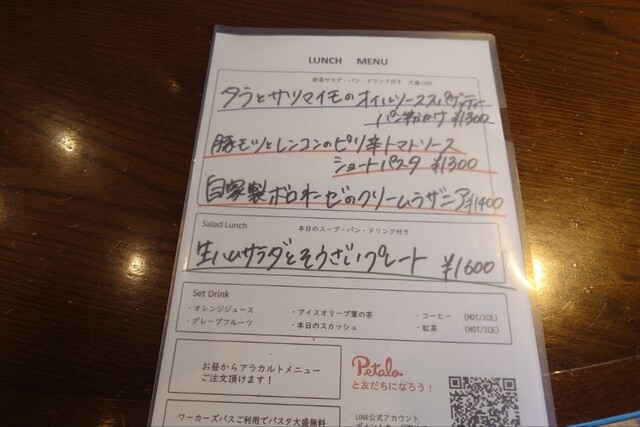 LUNCH MENU
前菜サラダ・パン・ドリンク付き 大盛+100
タラとサツマイモのオイルソーススパゲッティー
パン粉がけ ¥1300
豚モツとレンコンのピリ辛トマトソース
ショートパスタ ¥1300
自家製ボロネーゼのクリームラザニア ¥1400
Salad Lunch 本日のスープ・パン・ドリンク付き
生ハムサラダとそうざいプレート ¥1600
Set Drink
・オレンジジュース ・アイスオリーブ葉の茶 ・コーヒー (HOT/ICE)
・グレープフルーツ ・本日のスカッシュ ・紅茶 (HOT/ICE)
お昼からアラカルトメニュー
ご注文頂けます！
Petalo
と友だちになろう！
ワーカーズパスご利用でパスタ大盛無料
LINE公式アカウント